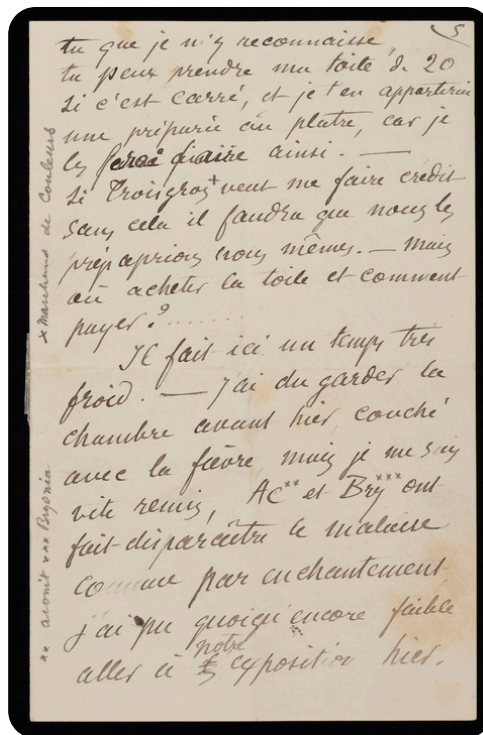 5
tu que je n'y reconnaisse,
tu peux prendre ma toile de 20
si c'est carré, et je t'en apporterai
une préparée au plâtre, car je
les ferai faire ainsi. —
si Troisgros+ veut me faire crédit
sans cela il faudra que nous les
préparions nous mêmes. — mais
où acheter la toile et comment
payer? .......
Il fait ici un temps très
froid. — J'ai du garder la
chambre avant hier, couché
avec la fièvre, mais je me suis
vite remis, Ac** et Bry*** ont
fait disparaître le malaise
comme par enchantement,
j'ai pu quoiqu'encore faible
aller à notre exposition hier.
× Marchand de Couleurs
** aconit *** Bryonia